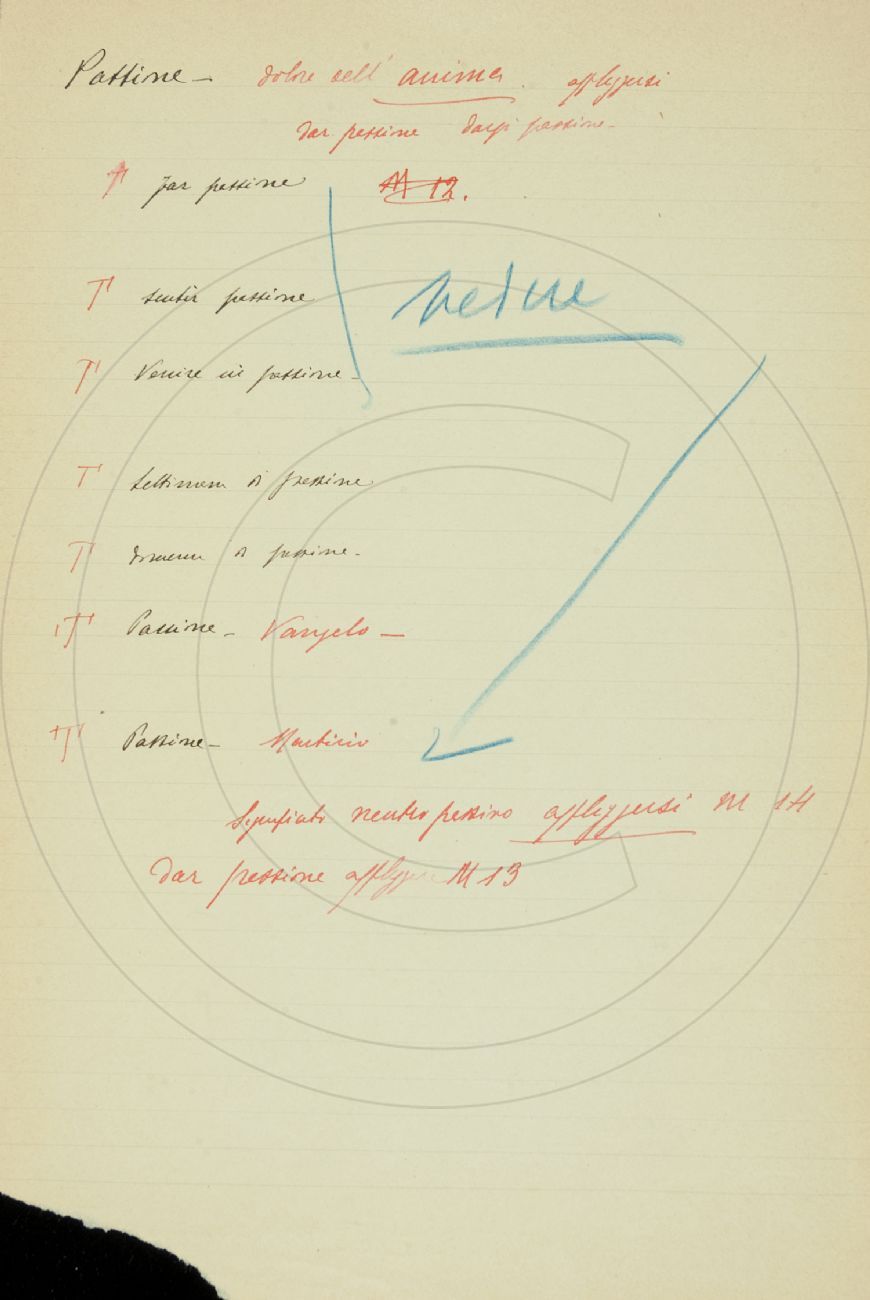 Passione – dolore dell' anima. affliggersi
dar passione darsi passione –
T far passione M 12.
vedere
T sentir passione
T Venire in passione –
T Settimana di passione
T domenica di passione –
T Passione – Vangelo –
T Passione – Martirio
Significato neutro passivo affliggersi M 14
Dar passione affliggere M 13